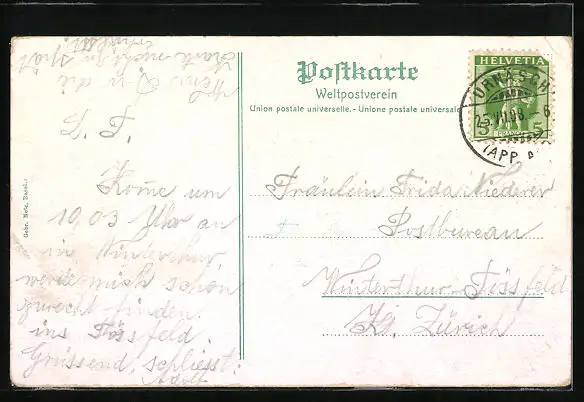 Postkarte
Weltpostverein
Union postale universelle. - Unione postale universale
HELVETIA
URNÄSCH
25.VII.08. - 6
(APP. A.
FRANCO
5 5
Gebr. Metz, Basel.
L. F.
Kome um
10.03 Uhr an
in Winterthur
werde mich schon
zurecht finden.
ins Tössfeld.
Grüssend, schliesst:
Adolf
Wenn Du die
Karte nicht zu spät
erhältst
Fräulein Frida Niederer
Postbureau
Winterthur-Tössfeld
Kt. Zürich